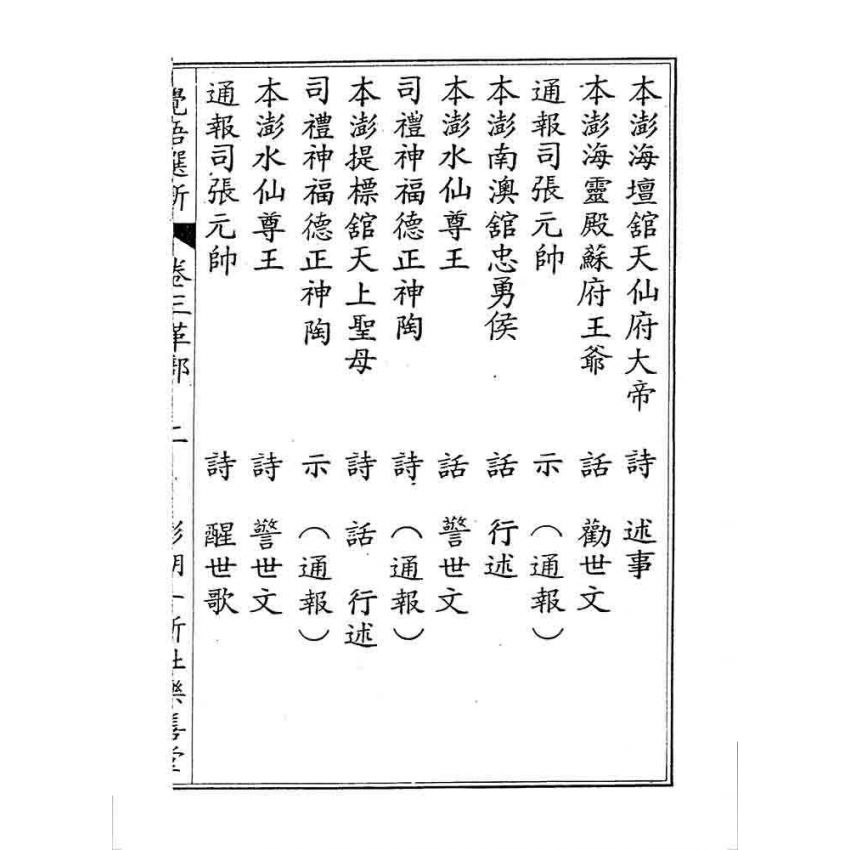 本澎海壇舘天仙府大帝　詩　述事
本澎海靈殿蘇府王爺　話　勸世文
通報司張元帥　示　（通報）
本澎南澳舘忠勇侯　話　行述
本澎水仙尊王　話　警世文
司禮神福德正神陶　詩　（通報）
本澎提標舘天上聖母　詩　話　行述
司禮神福德正神陶　示　（通報）
本澎水仙尊王　詩　警世文
通報司張元帥　詩　醒世歌
覺悟選新　卷三革部　二　澎湖一新社樂善堂